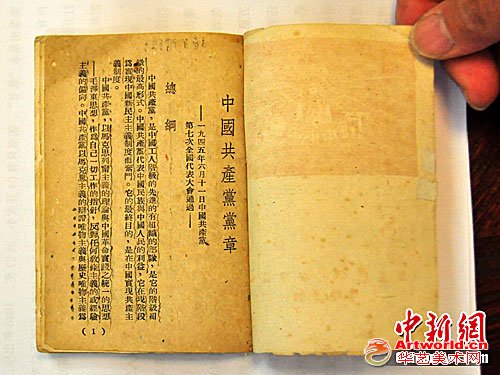 中國共產黨黨章
——一九四五年六月十一日中國共產黨
第七次全國代表大會通過——
總綱
中國共產黨，是中國工人階級的先進的有組織的部隊，是它的階級組
織的最高形式。中國共產黨代表中國民族與中國人民的利益，它在現階段
為實現中國新民主主義制度而奮鬥。它的最終目的，是在中國實現共產主
義制度。
中國共產黨，以馬克思列寧主義的理論與中國革命實踐之統一的思想
——毛澤東思想，作為自己一切工作的指針，反對任何教條主義的或經驗
主義的偏向。中國共產黨以馬克思主義的辯證唯物主義與歷史唯物主義為
(1)
中新網
Artworld.cn
华艺美术网